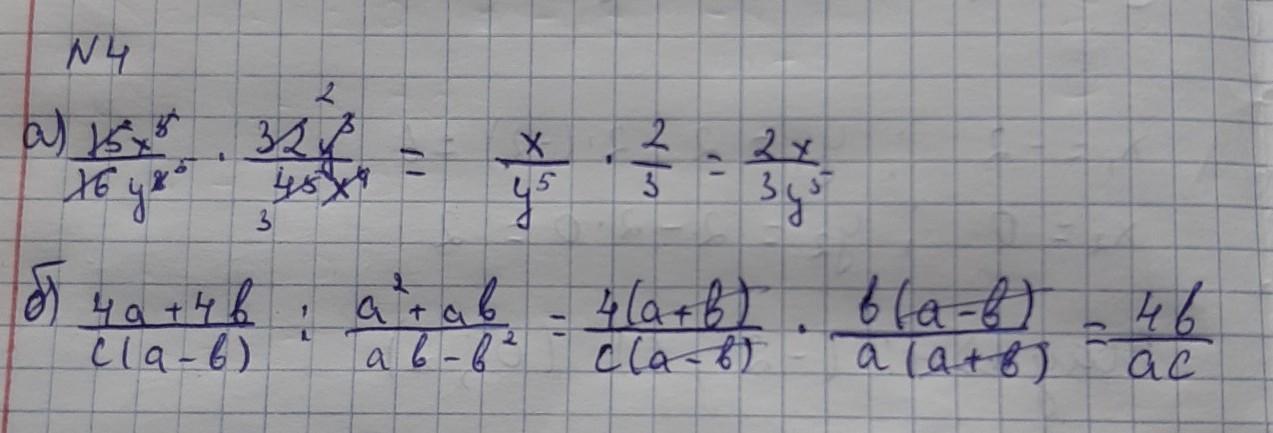 N4
а) 15x⁵/16y⁸ · 32y³/45x⁴ = x/y⁵ · 2/3 = 2x/3y⁵
б) 4a+4b/c(a-b) : a²+ab/ab-b² = 4(a+b)/c(a-b) · b(a-b)/a(a+b) = 4b/ac